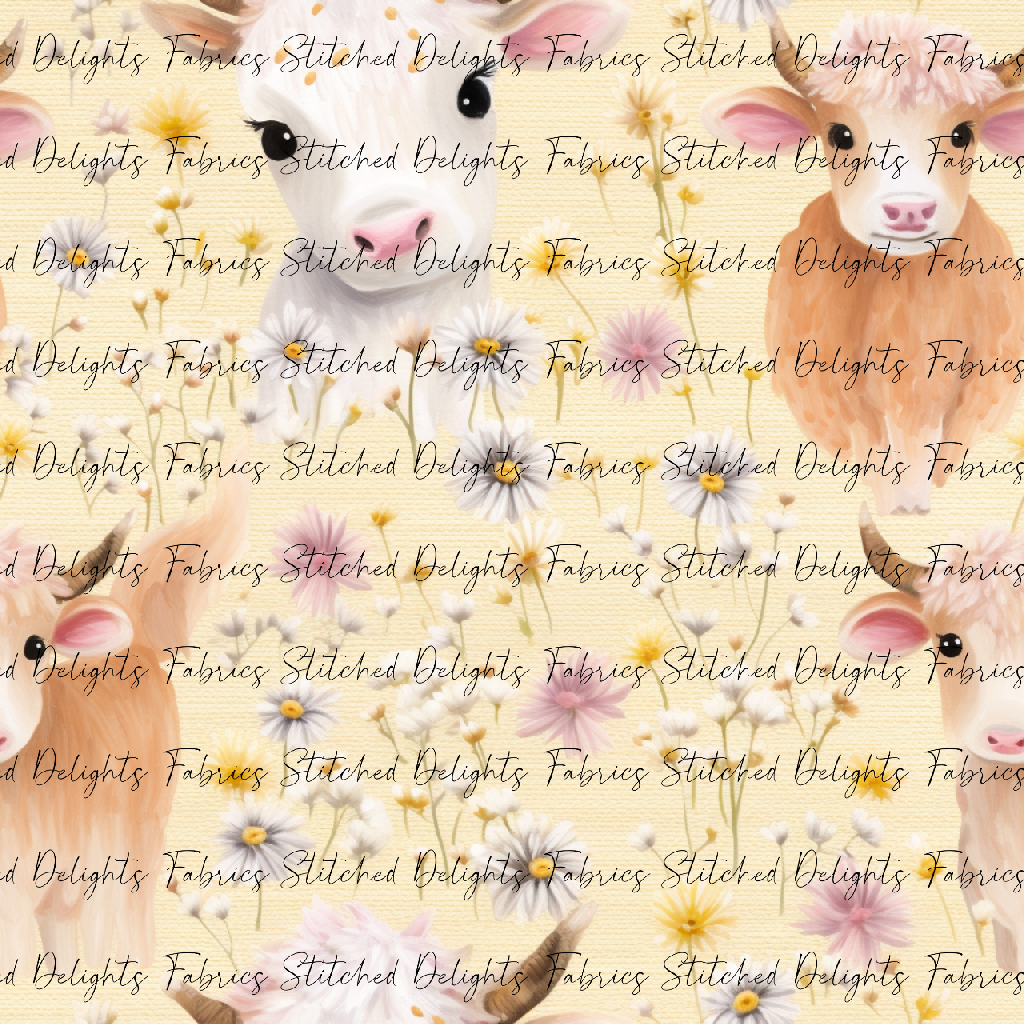 d Delights Fabrics Stitched Delights Fabrics Stitched Delights Fabrics
d Delights Fabrics Stitched Delights Fabrics Stitched Delights Fabrics
d Delights Fabrics Stitched Delights Fabrics Stitched Delights Fabrics
d Delights Fabrics Stitched Delights Fabrics Stitched Delights Fabrics
d Delights Fabrics Stitched Delights Fabrics Stitched Delights Fabrics
d Delights Fabrics Stitched Delights Fabrics Stitched Delights Fabrics
d Delights Fabrics Stitched Delights Fabrics Stitched Delights Fabrics
d Delights Fabrics Stitched Delights Fabrics Stitched Delights Fabrics
d Delights Fabrics Stitched Delights Fabrics Stitched Delights Fabrics
d Delights Fabrics Stitched Delights Fabrics Stitched Delights Fabrics